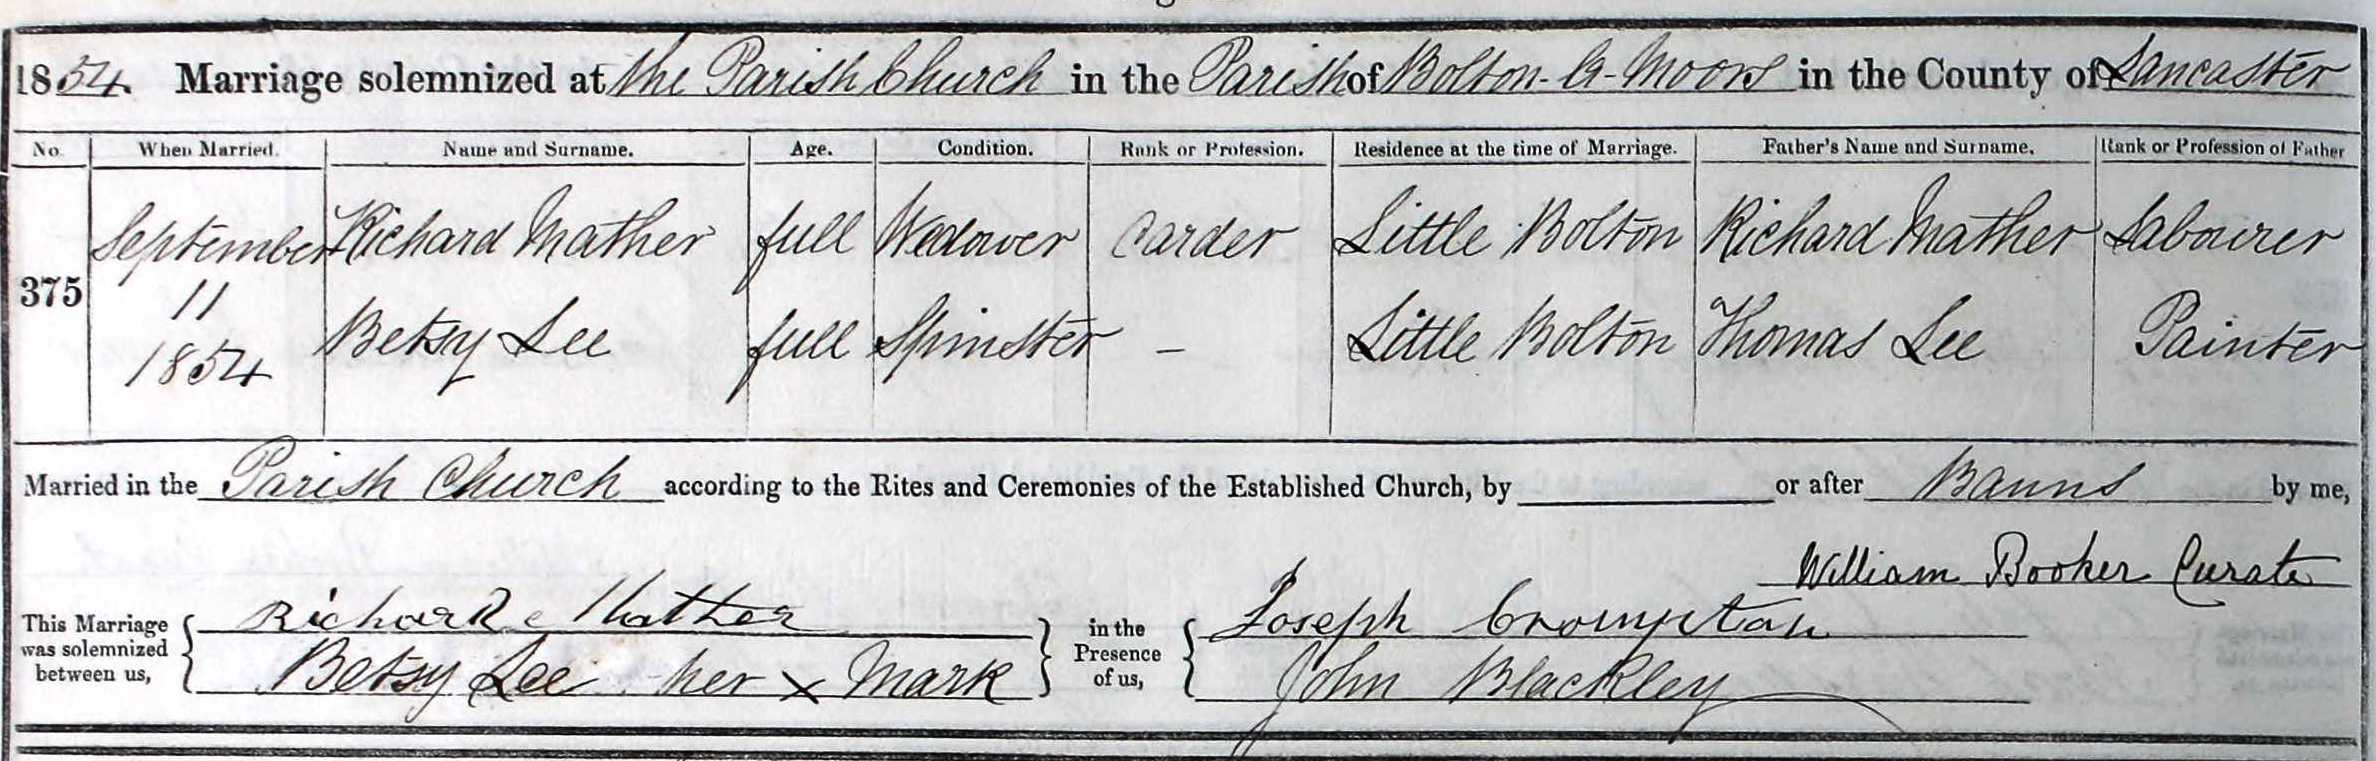 1854. Marriage solemnized at the Parish Church in the Parish of Bolton-le-Moors in the County of Lancaster
No. When Married. Name and Surname. Age. Condition. Rank or Profession. Residence at the time of Marriage. Father's Name and Surname. Rank or Profession of Father
375 September 11 1854
Richard Mather full Widower Carder Little Bolton Richard Mather Labourer
Betsy Lee full Spinster – Little Bolton Thomas Lee Painter
Married in the Parish Church according to the Rites and Ceremonies of the Established Church, by or after Banns by me,
William Booker Curate
This Marriage was solemnized between us, { Richard Mather } in the Presence of us, { Joseph Crompton
Betsy Lee her x Mark John Blackley